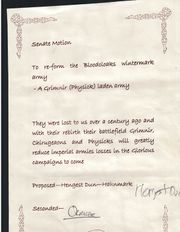 Senate Motion
To re-form the Bloodcloaks wintermark
army
- A Grimnir (Physick) laden army
They were lost to us over a century ago and
with their rebirth their battlefield Grimnir,
Chirugeons and Physicks will greatly
reduce imperial armies losses in the Glorious
campaigns to come
Proposed—Hengest Dun—Hahnmark
Seconded—